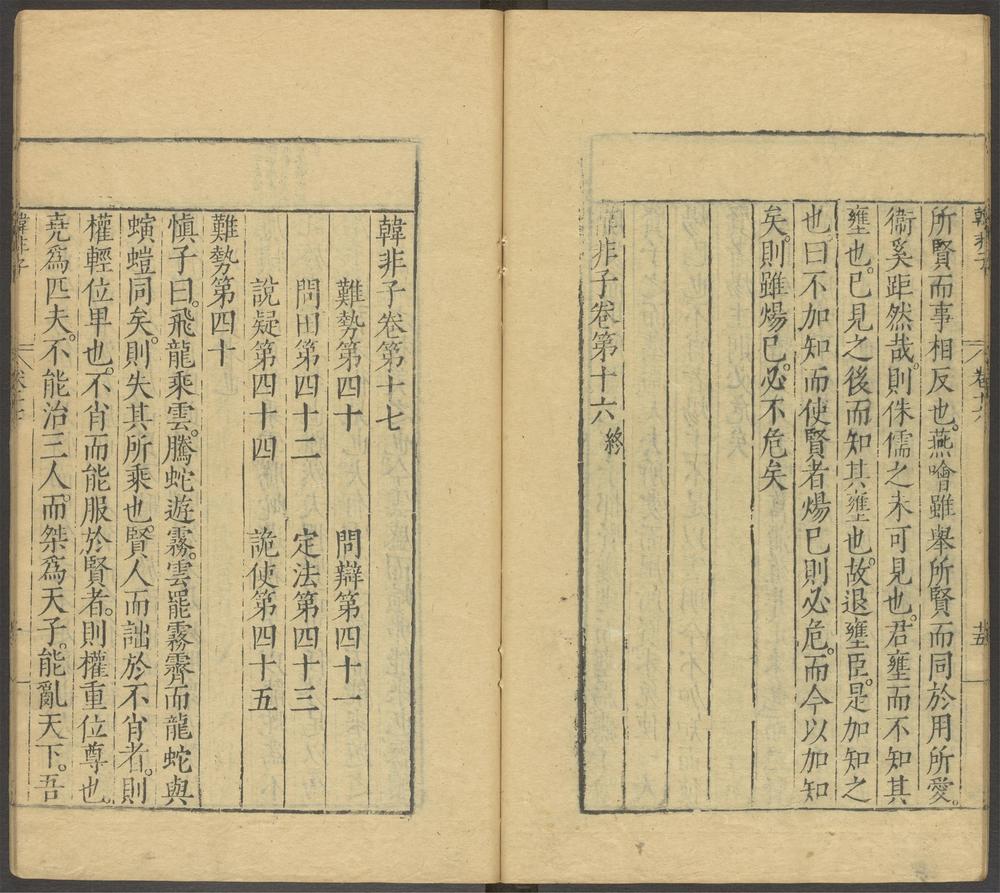 韓非子
卷十六
十五
所賢而事相反也。燕噲雖舉所賢而同於用所愛。
衞奚距然哉。則侏儒之未可見也。君壅而不知其
壅也。已見之後而知其壅也。故退壅臣。是加知之
也。曰不加知而使賢者煬已則必危。而今以加知
矣。則雖煬已。必不危矣
韓非子卷第十六 終
韓非子卷第十七
難勢第四十 問辯第四十一
問田第四十二 定法第四十三
說疑第四十四 詭使第四十五
難勢第四十
慎子曰。飛龍乘雲。騰蛇遊霧。雲罷霧霽而龍蛇與
螾螘同矣。則失其所乘也。賢人而詘於不肖者。則
權輕位卑也。不肖而能服於賢者。則權重位尊也。
堯爲匹夫。不能治三人。而桀爲天子。能亂天下。吾
韓非子
卷十七
一